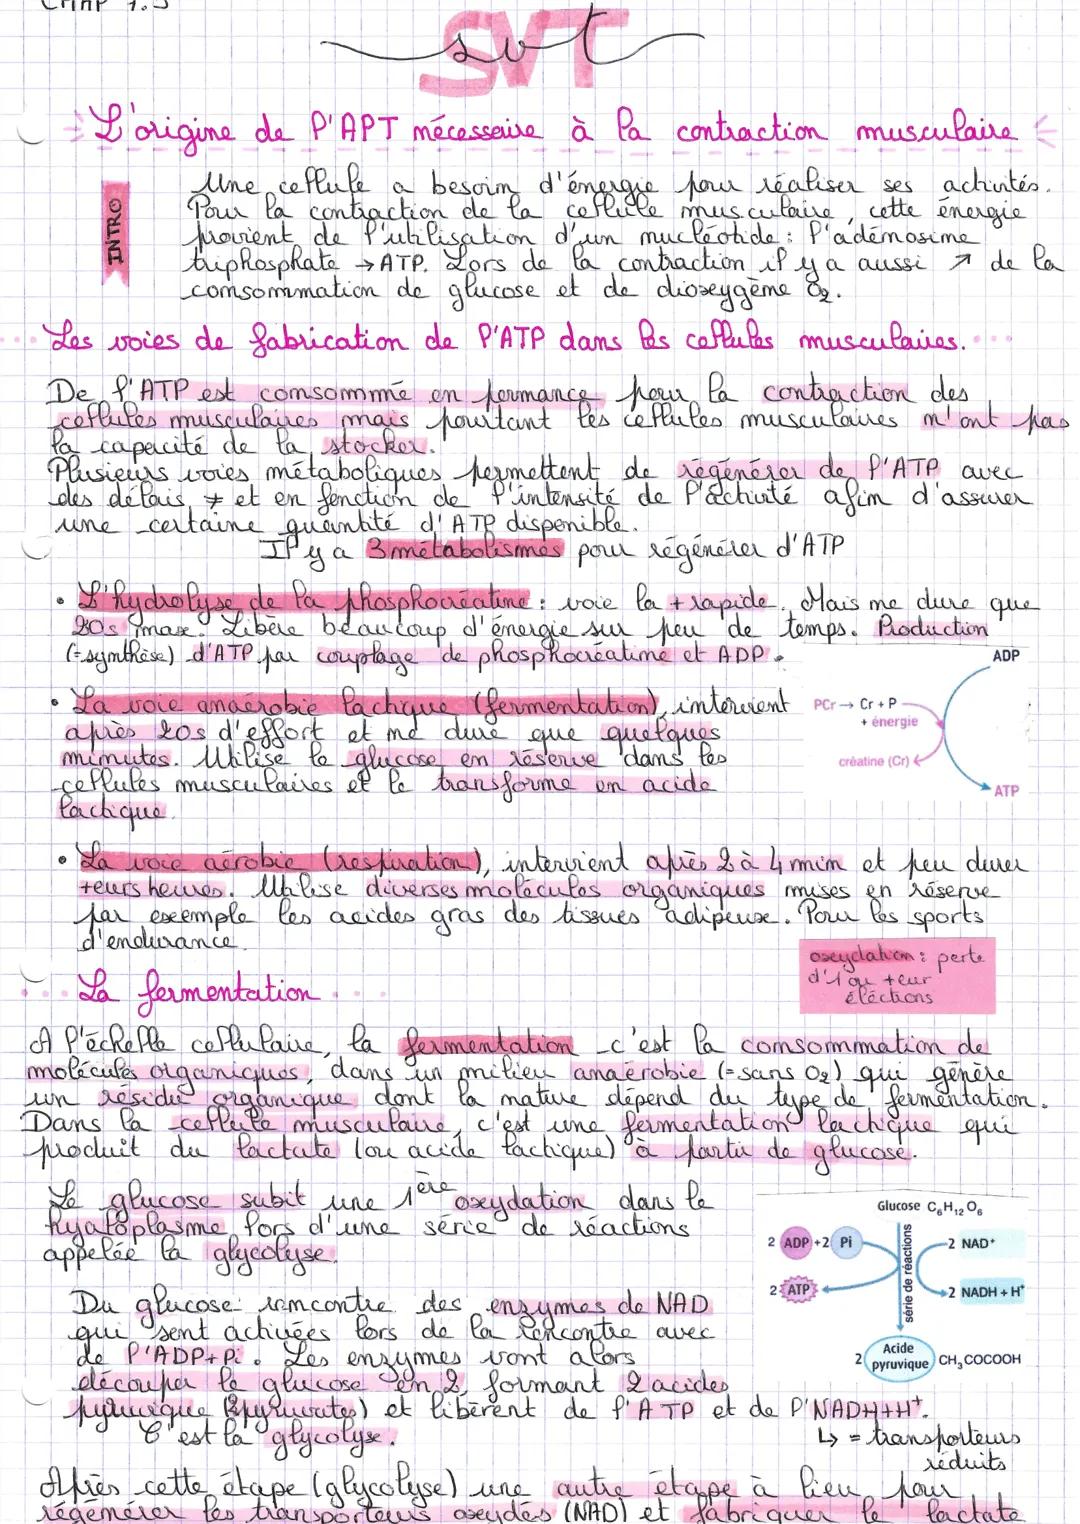 CHAP 7.3
SVT
svt
L'origine de l'APT nécessaire à la contraction musculaire
INTRO
Une cellule a besoin d'énergie pour réaliser ses activités.
Pour la contraction de la cellule musculaire, cette énergie
provient de l'utilisation d'un nucléotide : l'adénosine
triphosphate → ATP. Lors de la contraction il y a aussi ↗ de la
consommation de glucose et de dioxygène O₂.
Les voies de fabrication de l'ATP dans les cellules musculaires.
De l'ATP est consommé en permance pour la contraction des
cellules musculaires mais pourtant les cellules musculaires n'ont pas
la capacité de la stocker.
Plusieurs voies métaboliques permettent de régénérer de l'ATP avec
des délais ≠ et en fonction de l'intensité de l'activité afin d'assurer
une certaine quantité d'ATP disponible.
Il y a 3 métabolismes pour régénérer d'ATP
• L'hydrolyse de la phosphocréatine : voie la + rapide. Mais ne dure que
20s max. Libère beaucoup d'énergie sur peu de temps. Production
(=synthèse) d'ATP par couplage de phosphocréatine et ADP.
ADP
PCr → Cr + P
+ énergie
créatine (Cr)
ATP
• La voie anaérobie lactique (fermentation), intervient
après 20s d'effort et ne dure que quelques
minutes. Utilise le glucose en réserve dans les
cellules musculaires et le transforme en acide
lactique.
• La voie aérobie (respiration), intervient après 2 à 4 min et peu durer
+eurs heures. Utilise diverses molécules organiques mises en réserve
par exemple les acides gras des tissues adipeux. Pour les sports
d'endurance.
oxydation : perte
d'1 ou +eur
éléctions
La fermentation
A l'échelle cellulaire, la fermentation c'est la consommation de
molécules organiques, dans un milieu anaérobie (=sans O₂) qui génère
un résidu organique dont la nature dépend du type de fermentation.
Dans la cellule musculaire, c'est une fermentation lactique qui
produit du lactate (ou acide lactique) à partir de glucose.
Le glucose subit une 1ère oxydation dans le
hyaloplasme lors d'une série de réactions
appelée la glycolyse.
Glucose C₆H₁₂O₆
2 ADP + 2 Pi
2 NAD⁺
série de réactions
2 ATP
2 NADH + H⁺
2 Acide pyruvique CH₃COCOOH
Du glucose rencontre des enzymes de NAD
qui sent activées lors de la rencontre avec
de l'ADP+Pi. Les enzymes vont alors
découper le glucose en 2, formant 2 acides
pyruvique (2pyruvates) et libèrent de l'ATP et de l'NADH+H⁺.
C'est la glycolyse.
↳ = transporteurs
réduits
Après cette étape (glycolyse) une autre étape à lieu pour
régénérer les transporteurs oxydés (NAD) et fabriquer le lactate